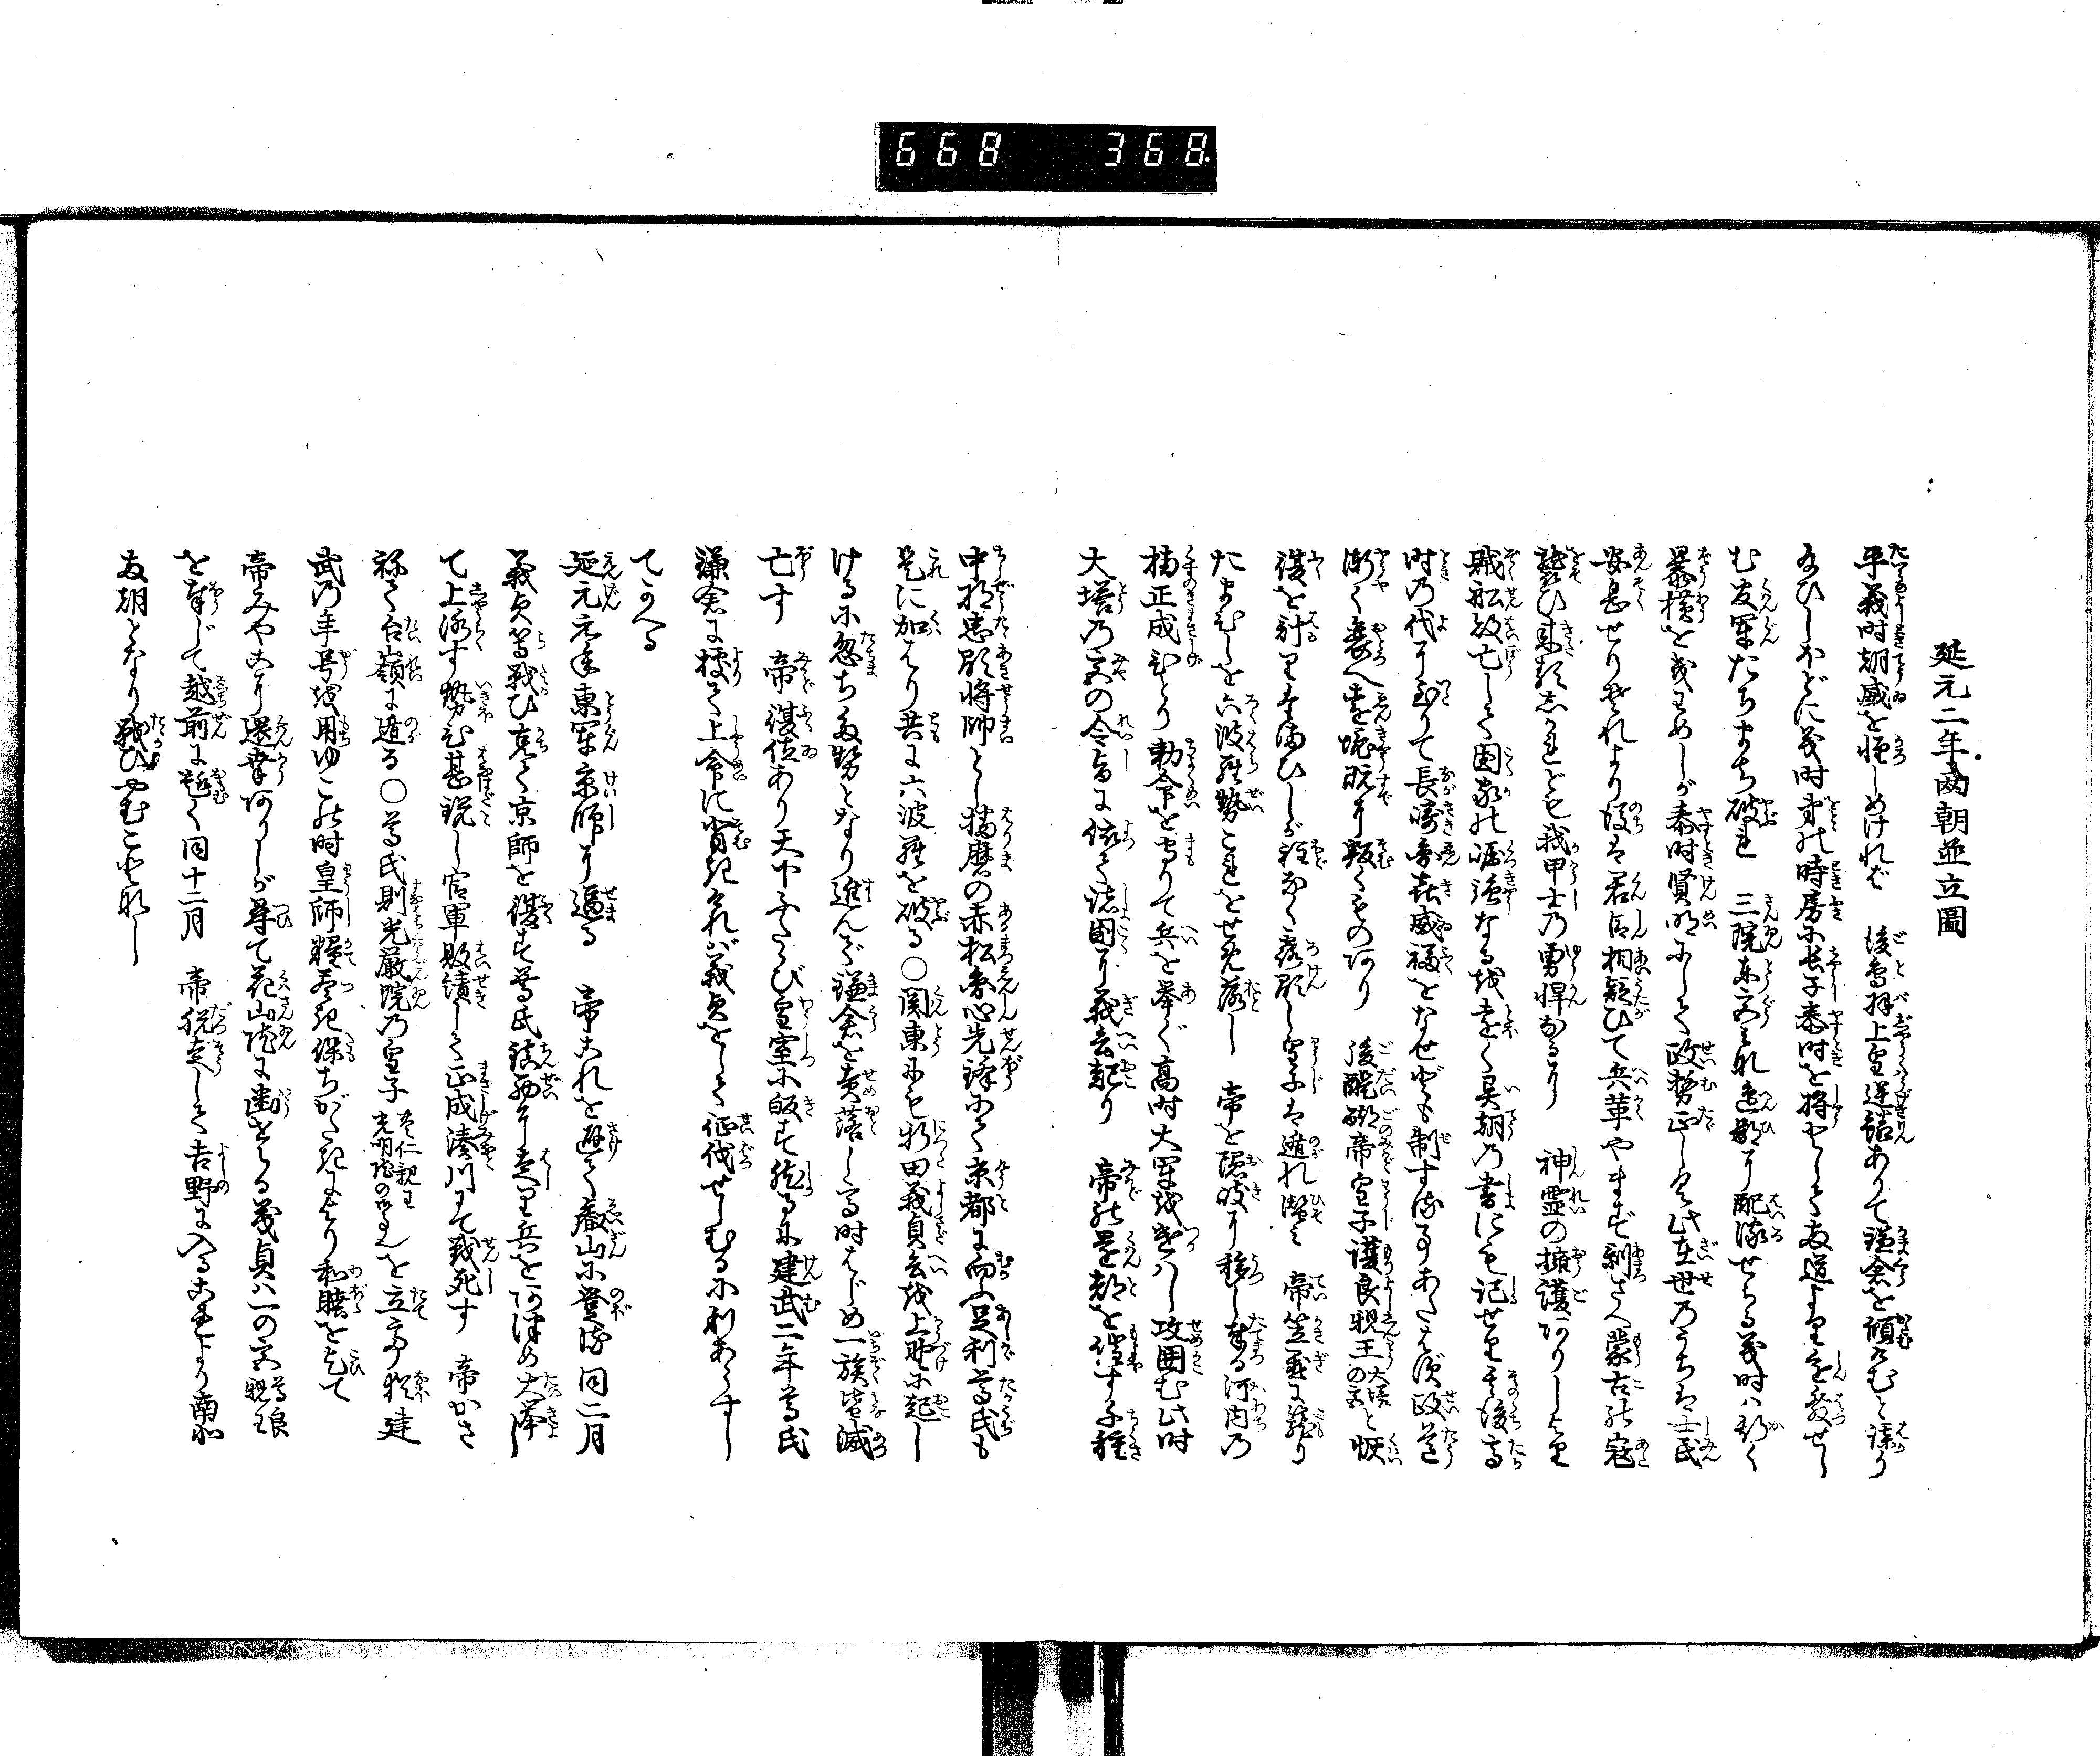 668 368
延元二年両朝並立圖
平義時朝威を軽しめけれバ 後鳥羽上皇逆鱗ありて鎌倉を傾けむと謀り
給ひしかどに義時弟の時房に長子泰時を将として両道より兵を発せし
む官軍たちまち破れ 三院東宮みな遠鄙に配流せらる義時ハ形く
暴横を成せしが泰時賢明にして政務正しく此在世のうちは士民
安息せりそれより後は君臣相疑ひて兵革やまず剰さへ蒙古の寇
襲ひ来れ共我甲士の勇悍なると 神霊の擁護ありしより
賊船破亡して国家の強なるを遠く異朝の書にも記せり其後高
時の代に至りて長崎高資威福をなせども制する事あたはず政道
漸く衰へ遠境既に叛くものあり 後醍醐帝皇子護良親王大塔の宮と恢
復を計り給ひしが程なく露顕し皇子は遁れ潜み 帝笠置に籠り
たまひしを六波羅勢これをせめ落し 帝を隠岐に移し奉る河内の
楠正成ひとり勅命を守りて兵を挙ぐ高時大軍を遣ハし攻囲む此時
大塔の宮の令旨に依て諸国に義兵起り 帝の還都を催す千種
中将忠顕将帥とし播磨の赤松円心先鋒にて京都に向ふ足利尊氏も
是に加はり共に六波羅を破る〇関東にも新田義貞兵を上野に起し
けるに忽ち多勢となり進んで鎌倉を責落し高時はじめ一族皆滅
亡す 帝復位あり天下ふたゝび皇室に皈す然るに建武二年尊氏
鎌倉に拠て上命に背きけれバ義貞をして征伐せしむるに利あらずし
てかへる
延元元年東軍京師に逼る 帝これを避て叡山に登る同二月
義貞等戦ひ克て京師を復す尊氏鎮西に走り兵をあつめ大挙し
て上洛す勢ひ甚鋭し官軍敗績して正成湊川にて戦死す 帝かさ
ねて台嶺に遁る〇尊氏則光厳院の皇子豊仁親王光明院の御事を立て猶建
武の年号を用ゆこの時皇師糧尽き保ちがたきにより和睦を乞て
帝みやこに還幸ありしが尋て花山院に幽せらる義貞ハ一の宮尊良親王
を奉じて越前に趣く同十二月 帝脱走して吉野に入るこれより南北
両朝となり戦ひやむことなし